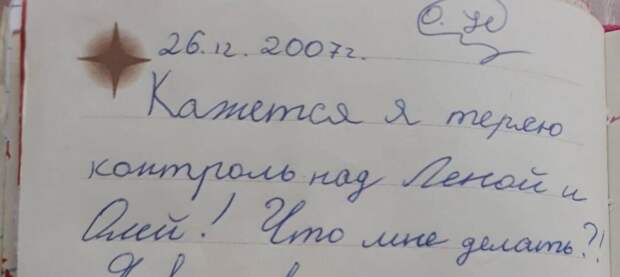 26.12.2007г.
Кажется я теряю
контроль над Леной и
Олей! Что мне делать?!